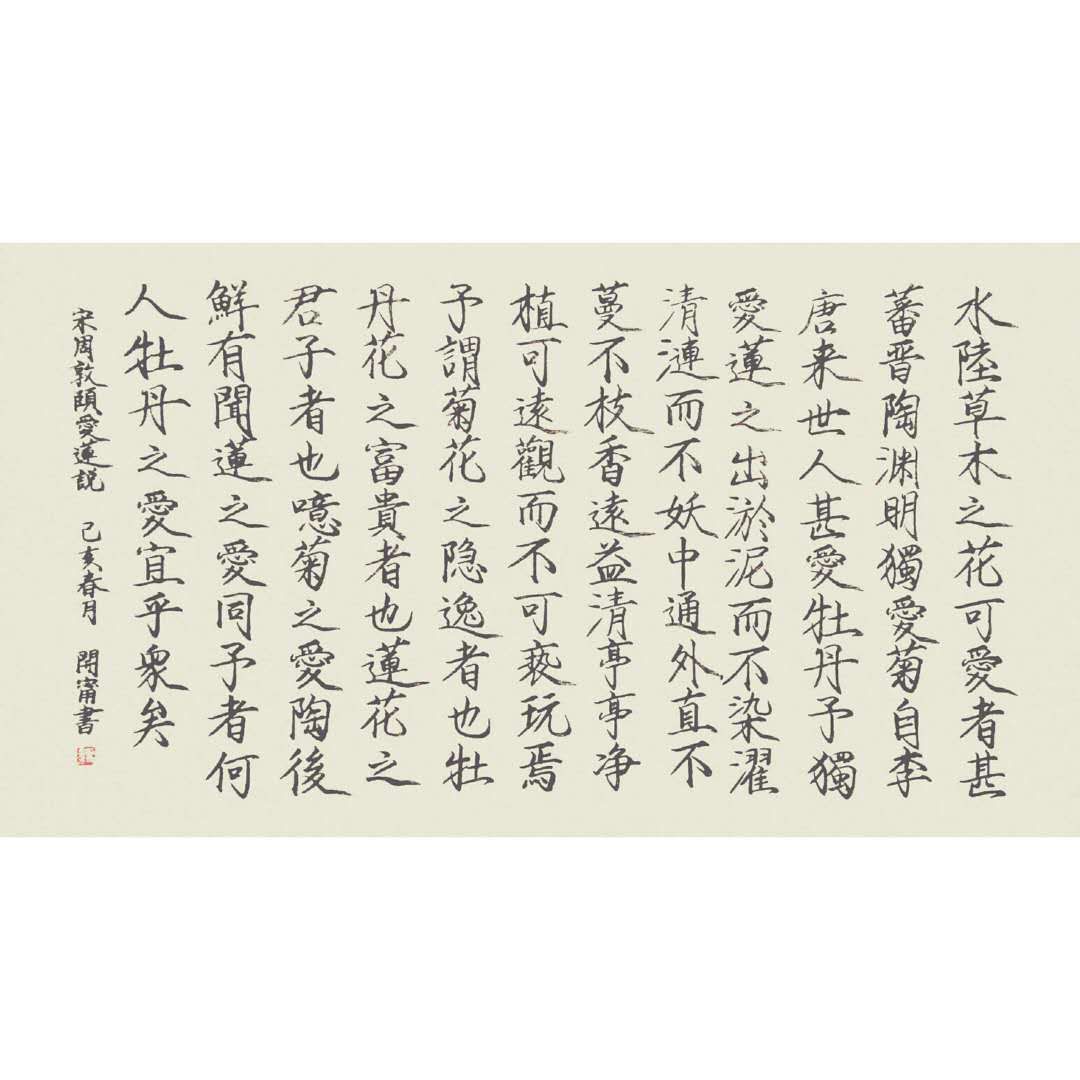 水陸草木之花可愛者甚
蕃晋陶渊明獨愛菊自李
唐来世人甚愛牡丹予獨
愛蓮之出淤泥而不染濯
清漣而不妖中通外直不
蔓不枝香遠益清亭亭净
植可遠觀而不可亵玩焉
予謂菊花之隐逸者也牡
丹花之富貴者也蓮花之
君子者也噫菊之愛陶後
鮮有聞蓮之愛同予者何
人牡丹之愛宜乎衆矣
宋周敦頤愛蓮説 己亥春月 閑甯書